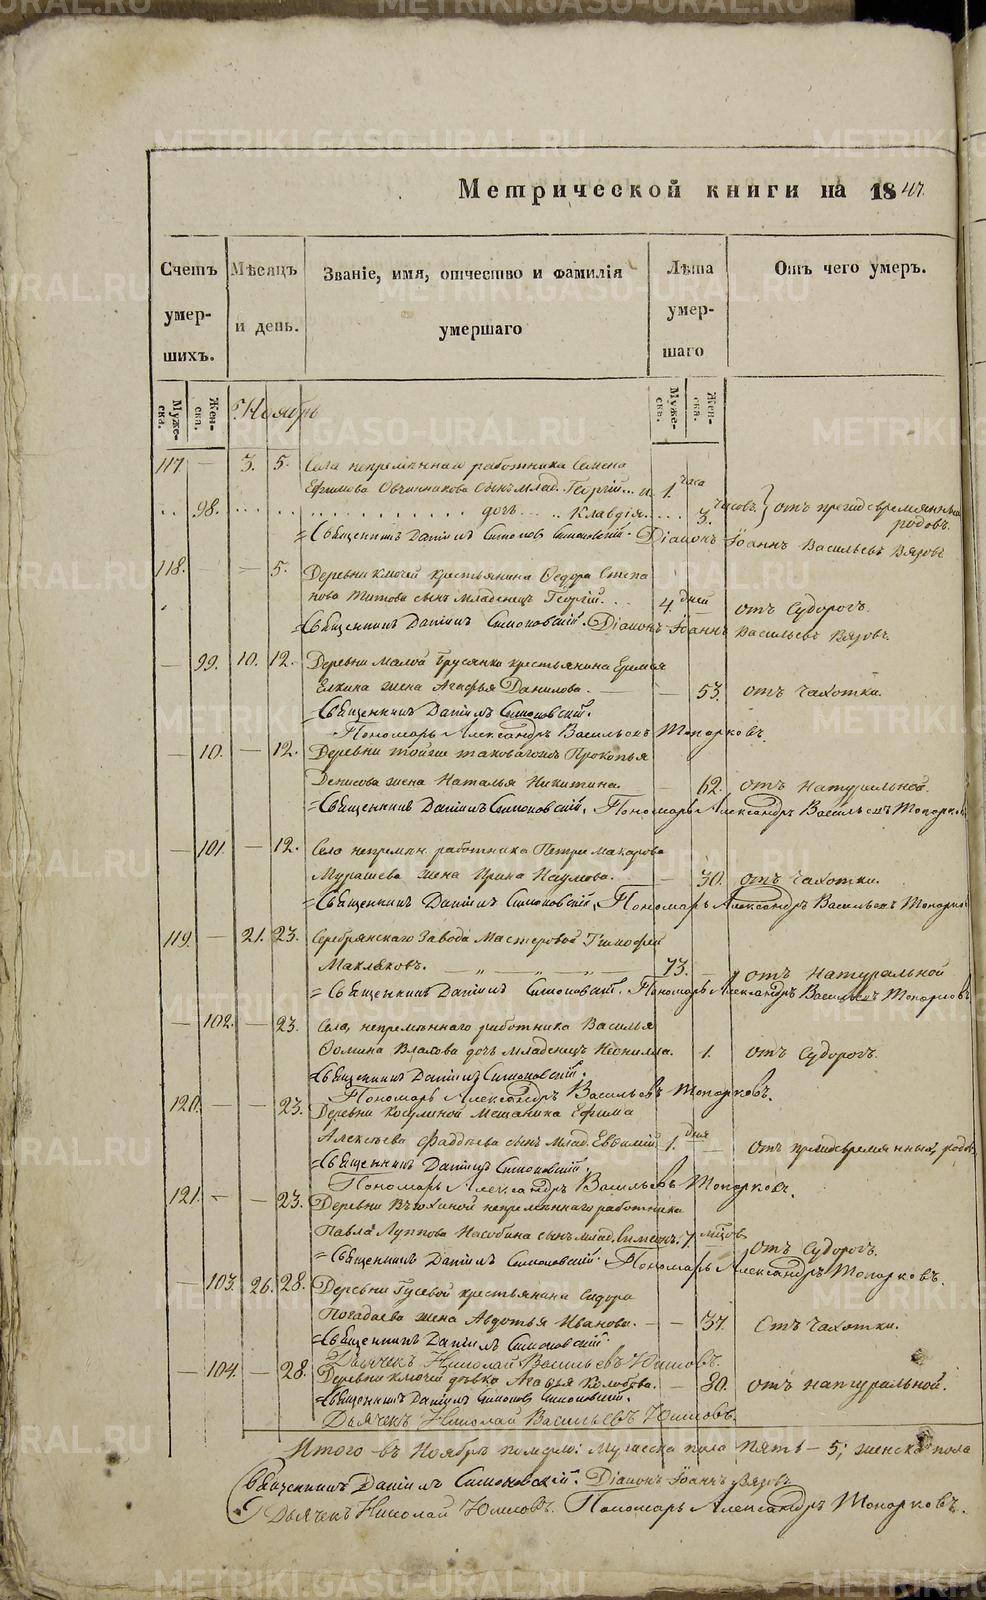 Метрической книги на 1847
Счетъ умер-шихъ.
Мѣсяцъ и день.
Званіе, имя, отчество и фамилія умершаго
Лѣта умер-шаго
Отъ чего умеръ.
Муже-ска.
Жен-ска.
Муже-ска.
Жен-ска.
Ноябрь
117. — 3. 5. Села непремѣннаго работника Семена
Ефимова Овчинникова сынъ млад. Георгій... и. 1. часа
98. дочь ... Клавдія ... 3. часовъ. } отъ преждевременныхъ родовъ.
Священникъ Даніилъ Симоновскій. Діаконъ Іоаннъ Васильевъ Вязовъ
118. — 5. Деревни Ключей крестьянина Федора Степа
нова Титова сынъ младенецъ Георгій. 4. дней отъ судорогъ.
Священникъ Даніилъ Симоновскій. Діаконъ Іоаннъ Васильевъ Вязовъ.
— 99. 10. 12. Деревни Малой Брусянки крестьянина Еремея
Елкина жена Агафья Данилова. — — 53. отъ чахотки.
Священникъ Даніилъ Симоновскій.
Пономарь Александръ Васильевъ Топорковъ.
— 10. — 12. Деревни тойже таковагожъ Прокопья
Денисова жена Наталья Никитина. 62. отъ натуральной.
Священникъ Даніилъ Симоновскій. Пономарь Александръ Васильевъ Топорков
— 101. — 12. Села непремѣн. работника Петра Макарова
Мурашева жена Ирина Наумова. — 30. отъ чахотки.
Священникъ Даніилъ Симоновскій. Пономарь Александръ Васильевъ Топорко
119. — 21. 23. Серебрянскаго Завода Мастеровой Тимофей
Маклаковъ. — „ — „ — „ — 73. — отъ натуральной
Священникъ Даніилъ Симоновскій. Пономарь Александръ Васильевъ Топорковъ
— 102. — 23. Села, непремѣннаго работника Василья
Фомина Власова дочь младенецъ Неонилла. 1. отъ судорогъ.
Священникъ Даніилъ Симоновскій.
Пономарь Александръ Васильевъ Топорковъ.
120. — — 23. Деревни Косулиной Мещаника Ефима
Алексѣева Фаддѣева сынъ млад. Евфимій 1. дня — отъ преждевременныхъ родов.
Священникъ Даніилъ Симоновскій.
Пономарь Александръ Васильевъ Топорковъ.
121. — — 23. Деревни непремѣннаго работника
Павла Луппова сынъ млад. Симеонъ. 7 мѣсцов отъ судорогъ.
Священникъ Даніилъ Симоновскій. Пономарь Александръ Топорковъ.
— 103. 26. 28. Деревни Гусевой крестьянина Сидора
Погадаева жена Авдотья Иванова. — — 37. Отъ чахотки.
Священникъ Даніилъ Симоновскій
Дьячекъ Николай Васильевъ Юшковъ.
— 104. — 28. Деревни Ключей дѣвка Агафья Колобова. — 80. отъ натуральной.
Священникъ Даніилъ Симоновскій.
Дьячекъ Николай Васильевъ Юшковъ.
Итого въ Ноябрѣ помрло: Мужеска пола пять — 5; женска пола
Священникъ Даніилъ Симоновскій. Діаконъ Іоаннъ Вязовъ
Дьячекъ Николай Юшковъ. Пономарь Александръ Топорковъ.
METRIKI.GASO-URAL.RU